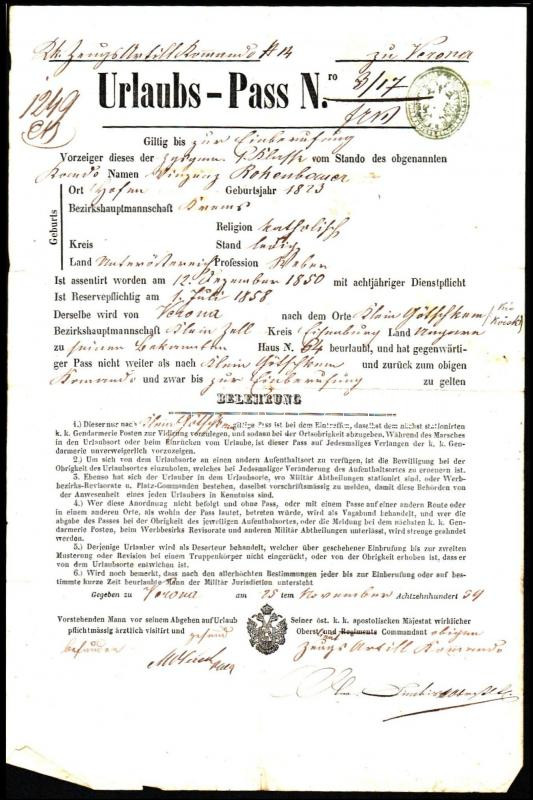 K.k. Zeugs Artill Komando N 14 zu Verona
Urlaubs-Pass N.ro 3/17
1249
Giltig bis zur Einberufung
Vorzeiger dieses der 1. Klasse vom Stande des obgenannten
Komdo Namen Vinzenz Rohenbauer
Geburts
Ort Geburtsjahr 1823
Bezirkshauptmannschaft Krems
Religion katholisch
Kreis Stand ledig
Land Unterösterreich Profession Weber
Ist assentirt worden am 12. Dezember 1850 mit achtjähriger Dienstpflicht
Ist Reservepflichtig am 1. Juli 1858
Derselbe wird von Verona nach dem Orte Klein
Bezirkshauptmannschaft Klein Zell Kreis Eisenburg Land Ungarn
zu seinen Bekannten Haus N. 64 beurlaubt, und hat gegenwärti-
ger Pass nicht weiter als nach Klein und zurück zum obigen
Komando und zwar bis zur Einberufung zu gelten
BELEHRUNG
1.) Dieser nur nach Klein giltige Pass ist bei dem Eintreffen, daselbst dem nächst stationirten
k. k. Gendarmerie Posten zur Vidirung vorzulegen, und sodann bei der Ortsobrigkeit abzugeben. Während des Marsches
in den Urlaubsort oder beim Einrücken vom Urlaube, ist dieser Pass auf Jedesmaliges Verlangen der k. k. Gen-
darmerie unverweigerlich vorzuzeigen.
2.) Um sich von dem Urlaubsorte an einen andern Aufenthaltsort zu verfügen, ist die Bewilligung bei der
Obrigkeit des Urlaubsortes einzuholen, welches bei Jedesmaliger Veränderung des Aufenthaltsortes zu erneuern ist.
3. Ebenso hat sich der Urlauber in dem Urlaubsorte, wo Militär Abtheilungen stationirt sind, oder Werb-
bezirks-Revisorate u. Platz-Commanden bestehen, daselbst vorschriftsmässig zu melden, damit diese Behörden von
der Anwesenheit eines jeden Urlaubers in Kenntniss sind.
4.) Wer diese Anordnung nicht befolgt und ohne Pass, oder mit einem Passe auf einer andern Route oder
in einem andern Orte, als wohin der Pass lautet, betreten würde, wird als Vagabund behandelt, und wer die
abgabe des Passes bei der Obrigkeit des jeweiligen Aufenthalsortes, oder die Meldung bei dem nächsten k. k. Gen-
darmerie Posten, beim Werbbesirks Revisorate und andern Militär Abtheilungen unterlasst, wird strenge geahndet
werden.
5.) Derjenige Urlauber wird als Deserteur behandelt, welcher über geschehener Einbrufung bis zur zweiten
Musterung oder Revision bei einem Truppenkörper nicht eingerückt, oder von der Obrigkeit erhoben ist, dass er
vom Urlaubsorte entwichen ist.
6.) Wird noch bemerkt, dass nach den allerhöchten Bestimmungen jeder bis zur Einberufung oder auf be-
stimmte kurze Zeit beurlaubte Mann der Militar Jurisdiction untersteht
Gegeben zu Verona am 25 tem November Achtzehnhundert 54
Vorstehenden Mann vor seinem Abgehen auf Urlaub
pflichtmässig ärztlich visitirt und gesund
befunden
Seiner öst. k. k. apostolischen Majestat wirklicher
Oberst und Regiments Commandant obigen
Zeugs Artill Komando